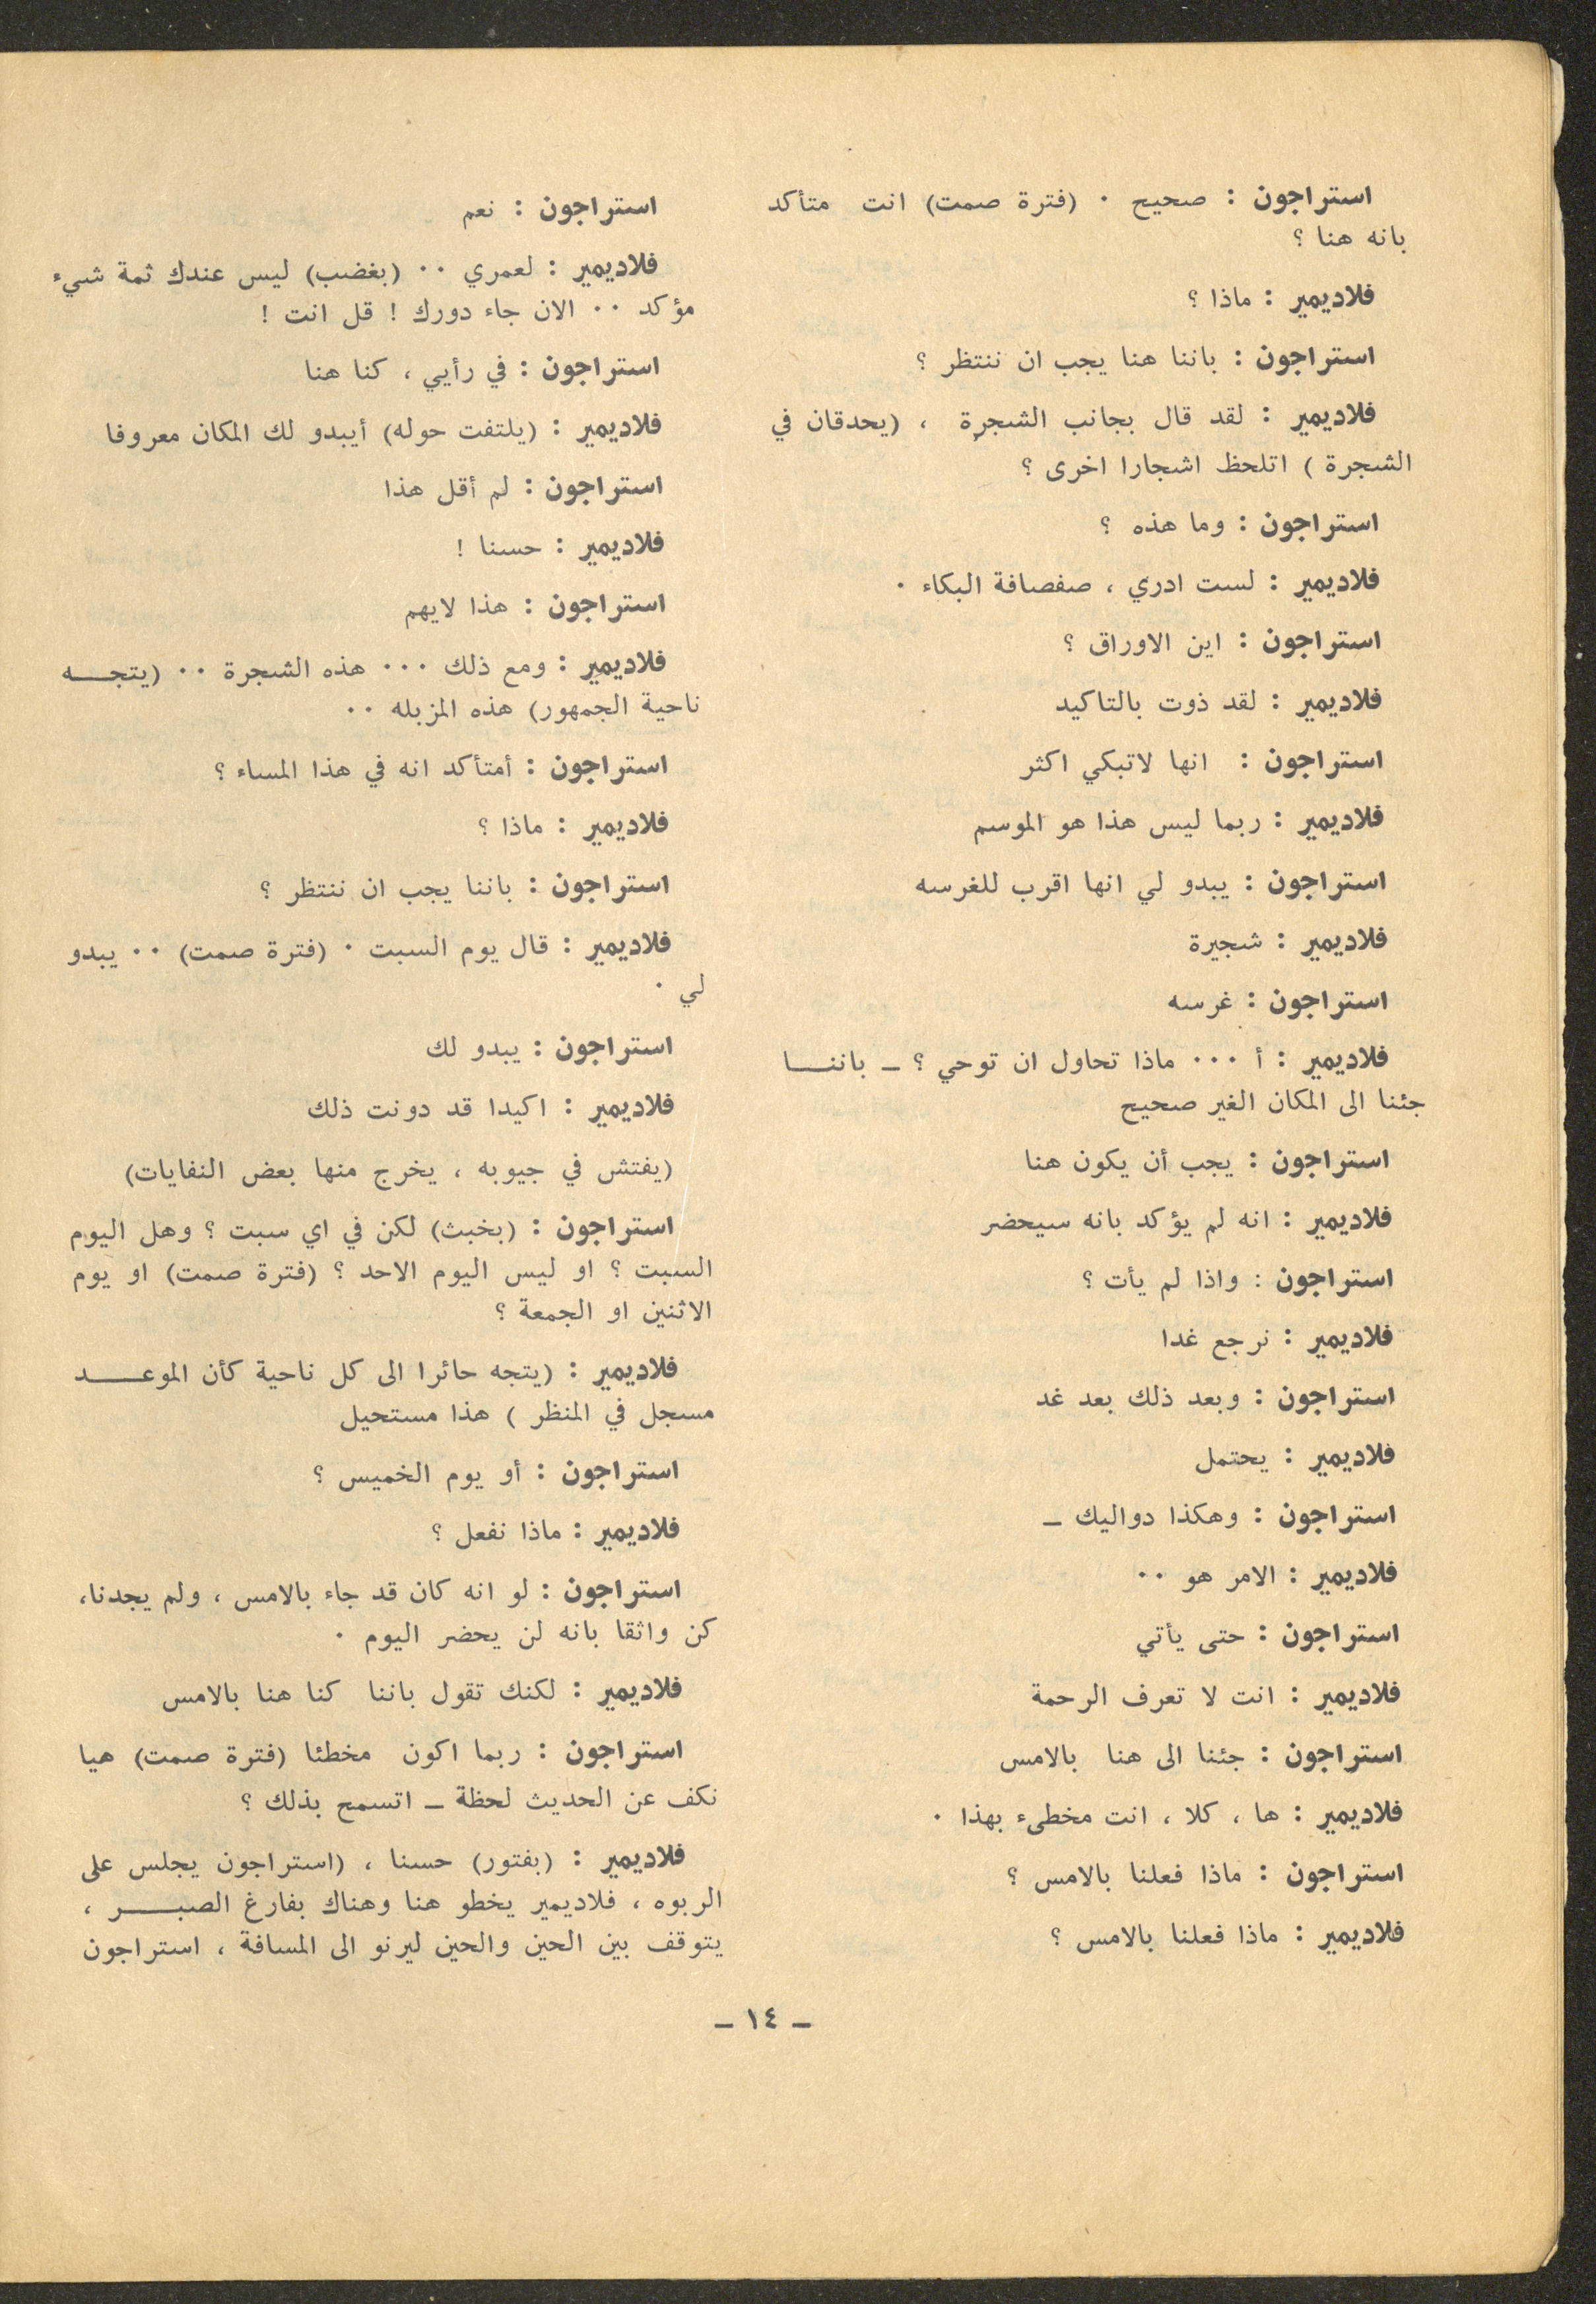 استراجون : صحيح ٠ (فترة صمت) انت متأكد
بانه هنا ؟
فلاديمير : ماذا ؟
استراجون : باننا هنا يجب ان ننتظر ؟
فلاديمير : لقد قال بجانب الشجرة ، (يحدقان في
الشجرة ) اتلحظ اشجارا اخرى ؟
استراجون : وما هذه ؟
فلاديمير : لست ادري ، صفصافة البكاء ٠
استراجون : اين الاوراق ؟
فلاديمير : لقد ذوت بالتاكيد
استراجون : انها لاتبكي اكثر
فلاديمير : ربما ليس هذا هو الموسم
استراجون : يبدو لي انها اقرب للغرسه
فلاديمير : شجيرة
استراجون : غرسه
فلاديمير : أ ٠٠٠ ماذا تحاول ان توحي ؟ ـ باننـــا
جئنا الى المكان الغير صحيح
استراجون : يجب أن يكون هنا
فلاديمير : انه لم يؤكد بانه سيحضر
استراجون : واذا لم يأت ؟
فلاديمير : نرجع غدا
استراجون : وبعد ذلك بعد غد
فلاديمير : يحتمل
استراجون : وهكذا دواليك ـ
فلاديمير : الامر هو ٠٠
استراجون : حتى يأتي
فلاديمير : انت لا تعرف الرحمة
استراجون : جئنا الى هنا بالامس
فلاديمير : ها ، كلا ، انت مخطىء بهذا ٠
استراجون : ماذا فعلنا بالامس ؟
فلاديمير : ماذا فعلنا بالامس ؟
استراجون : نعم
فلاديمير : لعمري ٠٠ (بغضب) ليس عندك ثمة شيء
مؤكد ٠٠ الان جاء دورك ! قل انت !
استراجون : في رأيي ، كنا هنا
فلاديمير : (يلتفت حوله) أيبدو لك المكان معروفا
استراجون : لم أقل هذا
فلاديمير : حسنا !
استراجون : هذا لايهم
فلاديمير : ومع ذلك ٠٠٠ هذه الشجرة ٠٠ (يتجـــه
ناحية الجمهور) هذه المزبله ٠٠
استراجون : أمتأكد انه في هذا المساء ؟
فلاديمير : ماذا ؟
استراجون : باننا يجب ان ننتظر ؟
فلاديمير : قال يوم السبت ٠ (فترة صمت) ٠٠ يبدو
لي ٠
استراجون : يبدو لك
فلاديمير : اكيدا قد دونت ذلك
(يفتش في جيوبه ، يخرج منها بعض النفايات)
استراجون : (بخبث) لكن في اي سبت ؟ وهل اليوم
السبت ؟ او ليس اليوم الاحد ؟ (فترة صمت) او يوم
الاثنين او الجمعة ؟
فلاديمير : (يتجه حائرا الى كل ناحية كأن الموعـــد
مسجل في المنظر ) هذا مستحيل
استراجون : أو يوم الخميس ؟
فلاديمير : ماذا نفعل ؟
استراجون : لو انه كان قد جاء بالامس ، ولم يجدنا،
كن واثقا بانه لن يحضر اليوم ٠
فلاديمير : لكنك تقول باننا كنا هنا بالامس
استراجون : ربما اكون مخطئا (فترة صمت) هيا
نكف عن الحديث لحظة ـ اتسمح بذلك ؟
فلاديمير : (بفتور) حسنا ، (استراجون يجلس على
الربوه ، فلاديمير يخطو هنا وهناك بفارغ الصبـــر ،
يتوقف بين الحين والحين ليرنو الى المسافة ، استراجون
ـ ١٤ ـ